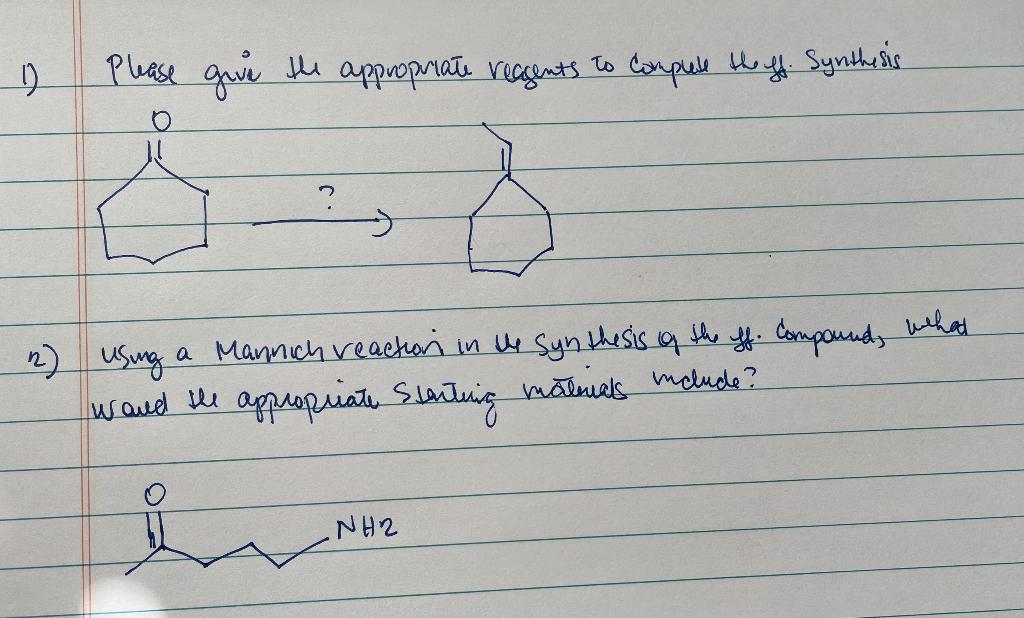 1) Please give the appropriate reagents to complete the ff. Synthesis
O
?
2) Using a Mannich reaction in the synthesis of the ff. Compound, what
would the appropriate Starting materials include?
O
NH2